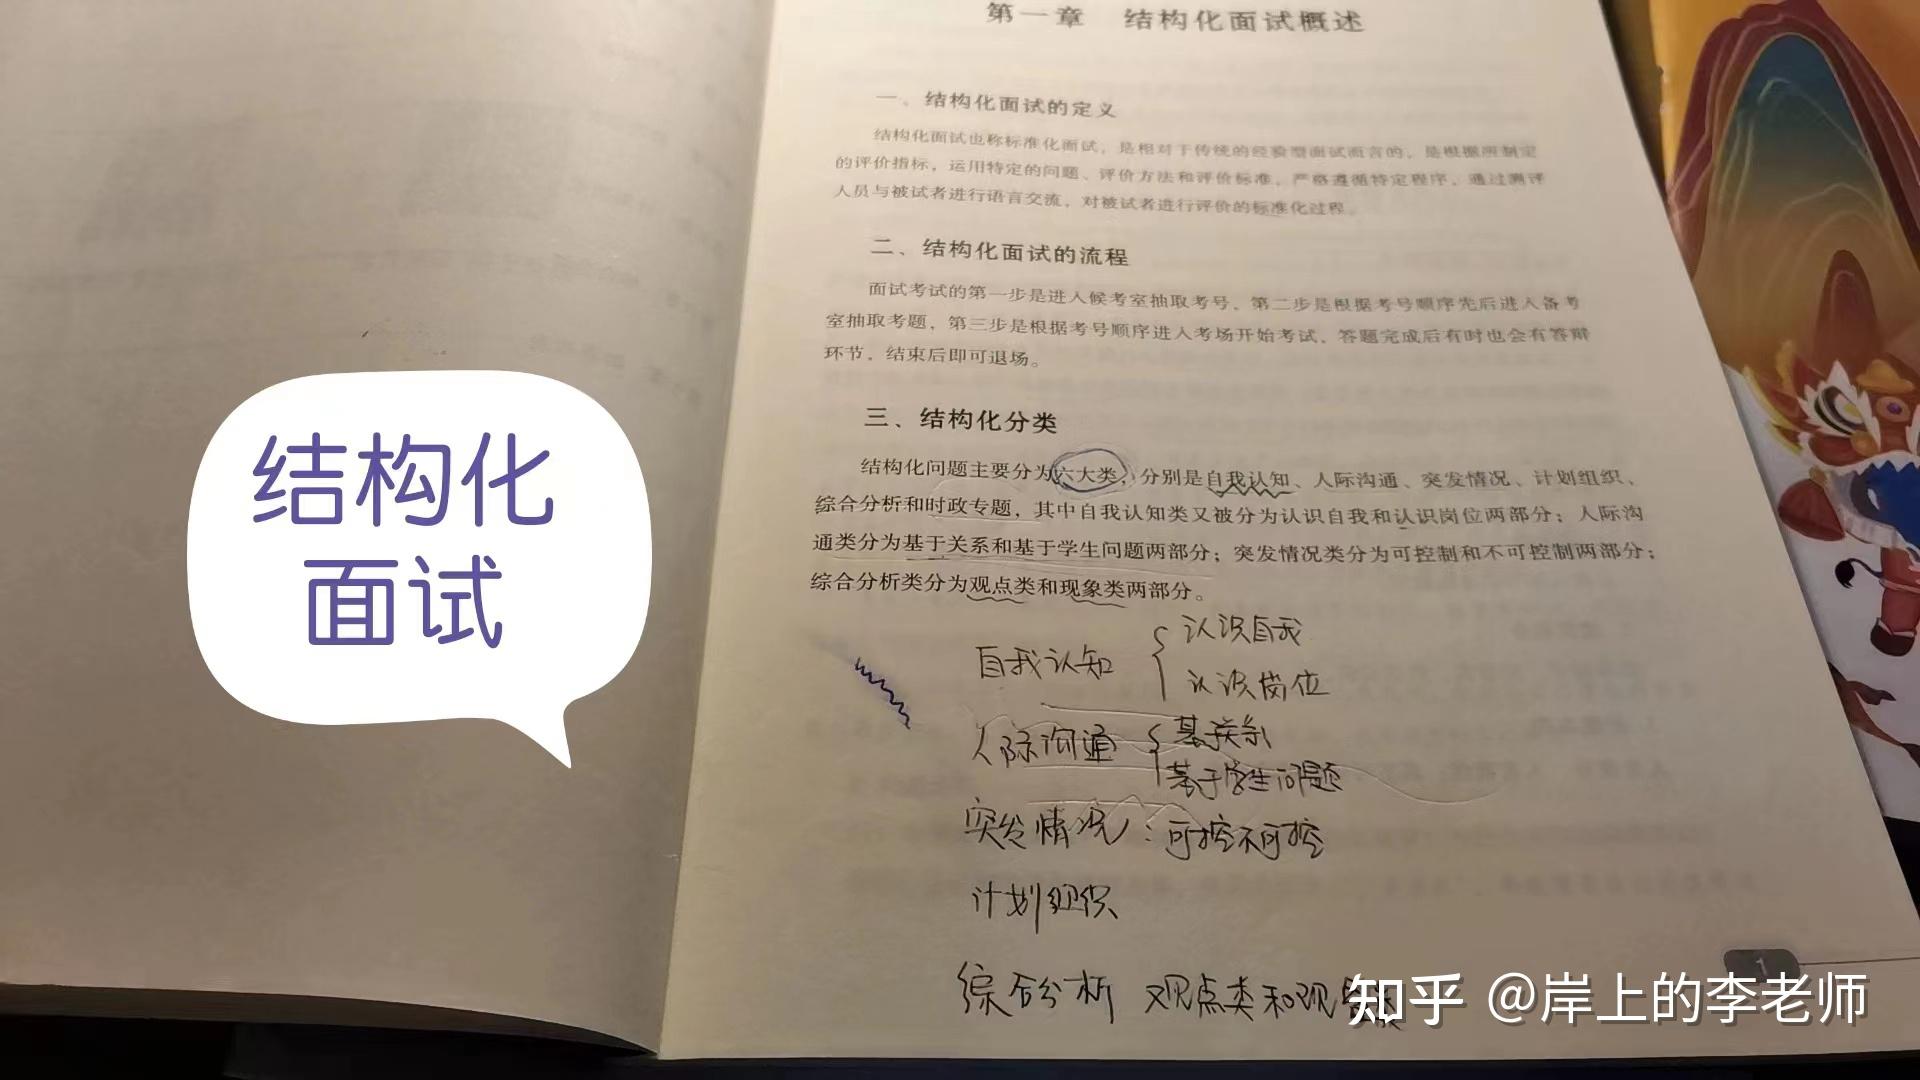 第一章 结构化面试概述
一、结构化面试的定义
结构化面试也称标准化面试，是相对于传统的经验型面试而言的，是根据所制定
的评价指标，运用特定的问题、评价方法和评价标准，严格遵循特定程序，通过测评
人员与被试者进行语言交流，对被试者进行评价的标准化过程。
二、结构化面试的流程
面试考试的第一步是进入候考室抽取考号，第二步是根据考号顺序先后进入备考
室抽取考题，第三步是根据考号顺序进入考场开始考试，答题完成后有时也会有答辩
环节，结束后即可退场。
三、结构化分类
结构化问题主要分为六大类，分别是自我认知、人际沟通、突发情况、计划组织、
综合分析和时政专题，其中自我认知类又被分为认识自我和认识岗位两部分；人际沟
通类分为基于关系和基于学生问题两部分；突发情况类分为可控制和不可控制两部分；
综合分析类分为观点类和现象类两部分。
自我认知 认识自我
认识岗位
人际沟通 基于关系
基于学生问题
突发情况：可控不可控
计划组织
综合分析 观点类和现
1
结构化
面试
知乎 @岸上的李老师